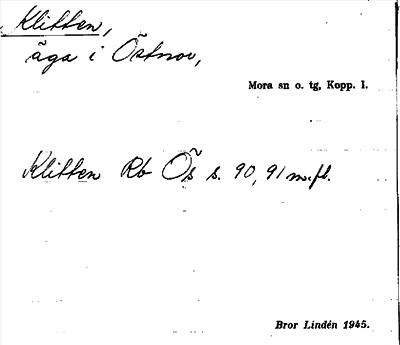 Klitten,
äga i Östnor,
Mora sn o. tg, Kopp. l.
Klitten Rb Ös s. 90, 91 m.fl.
Bror Lindén 1945.